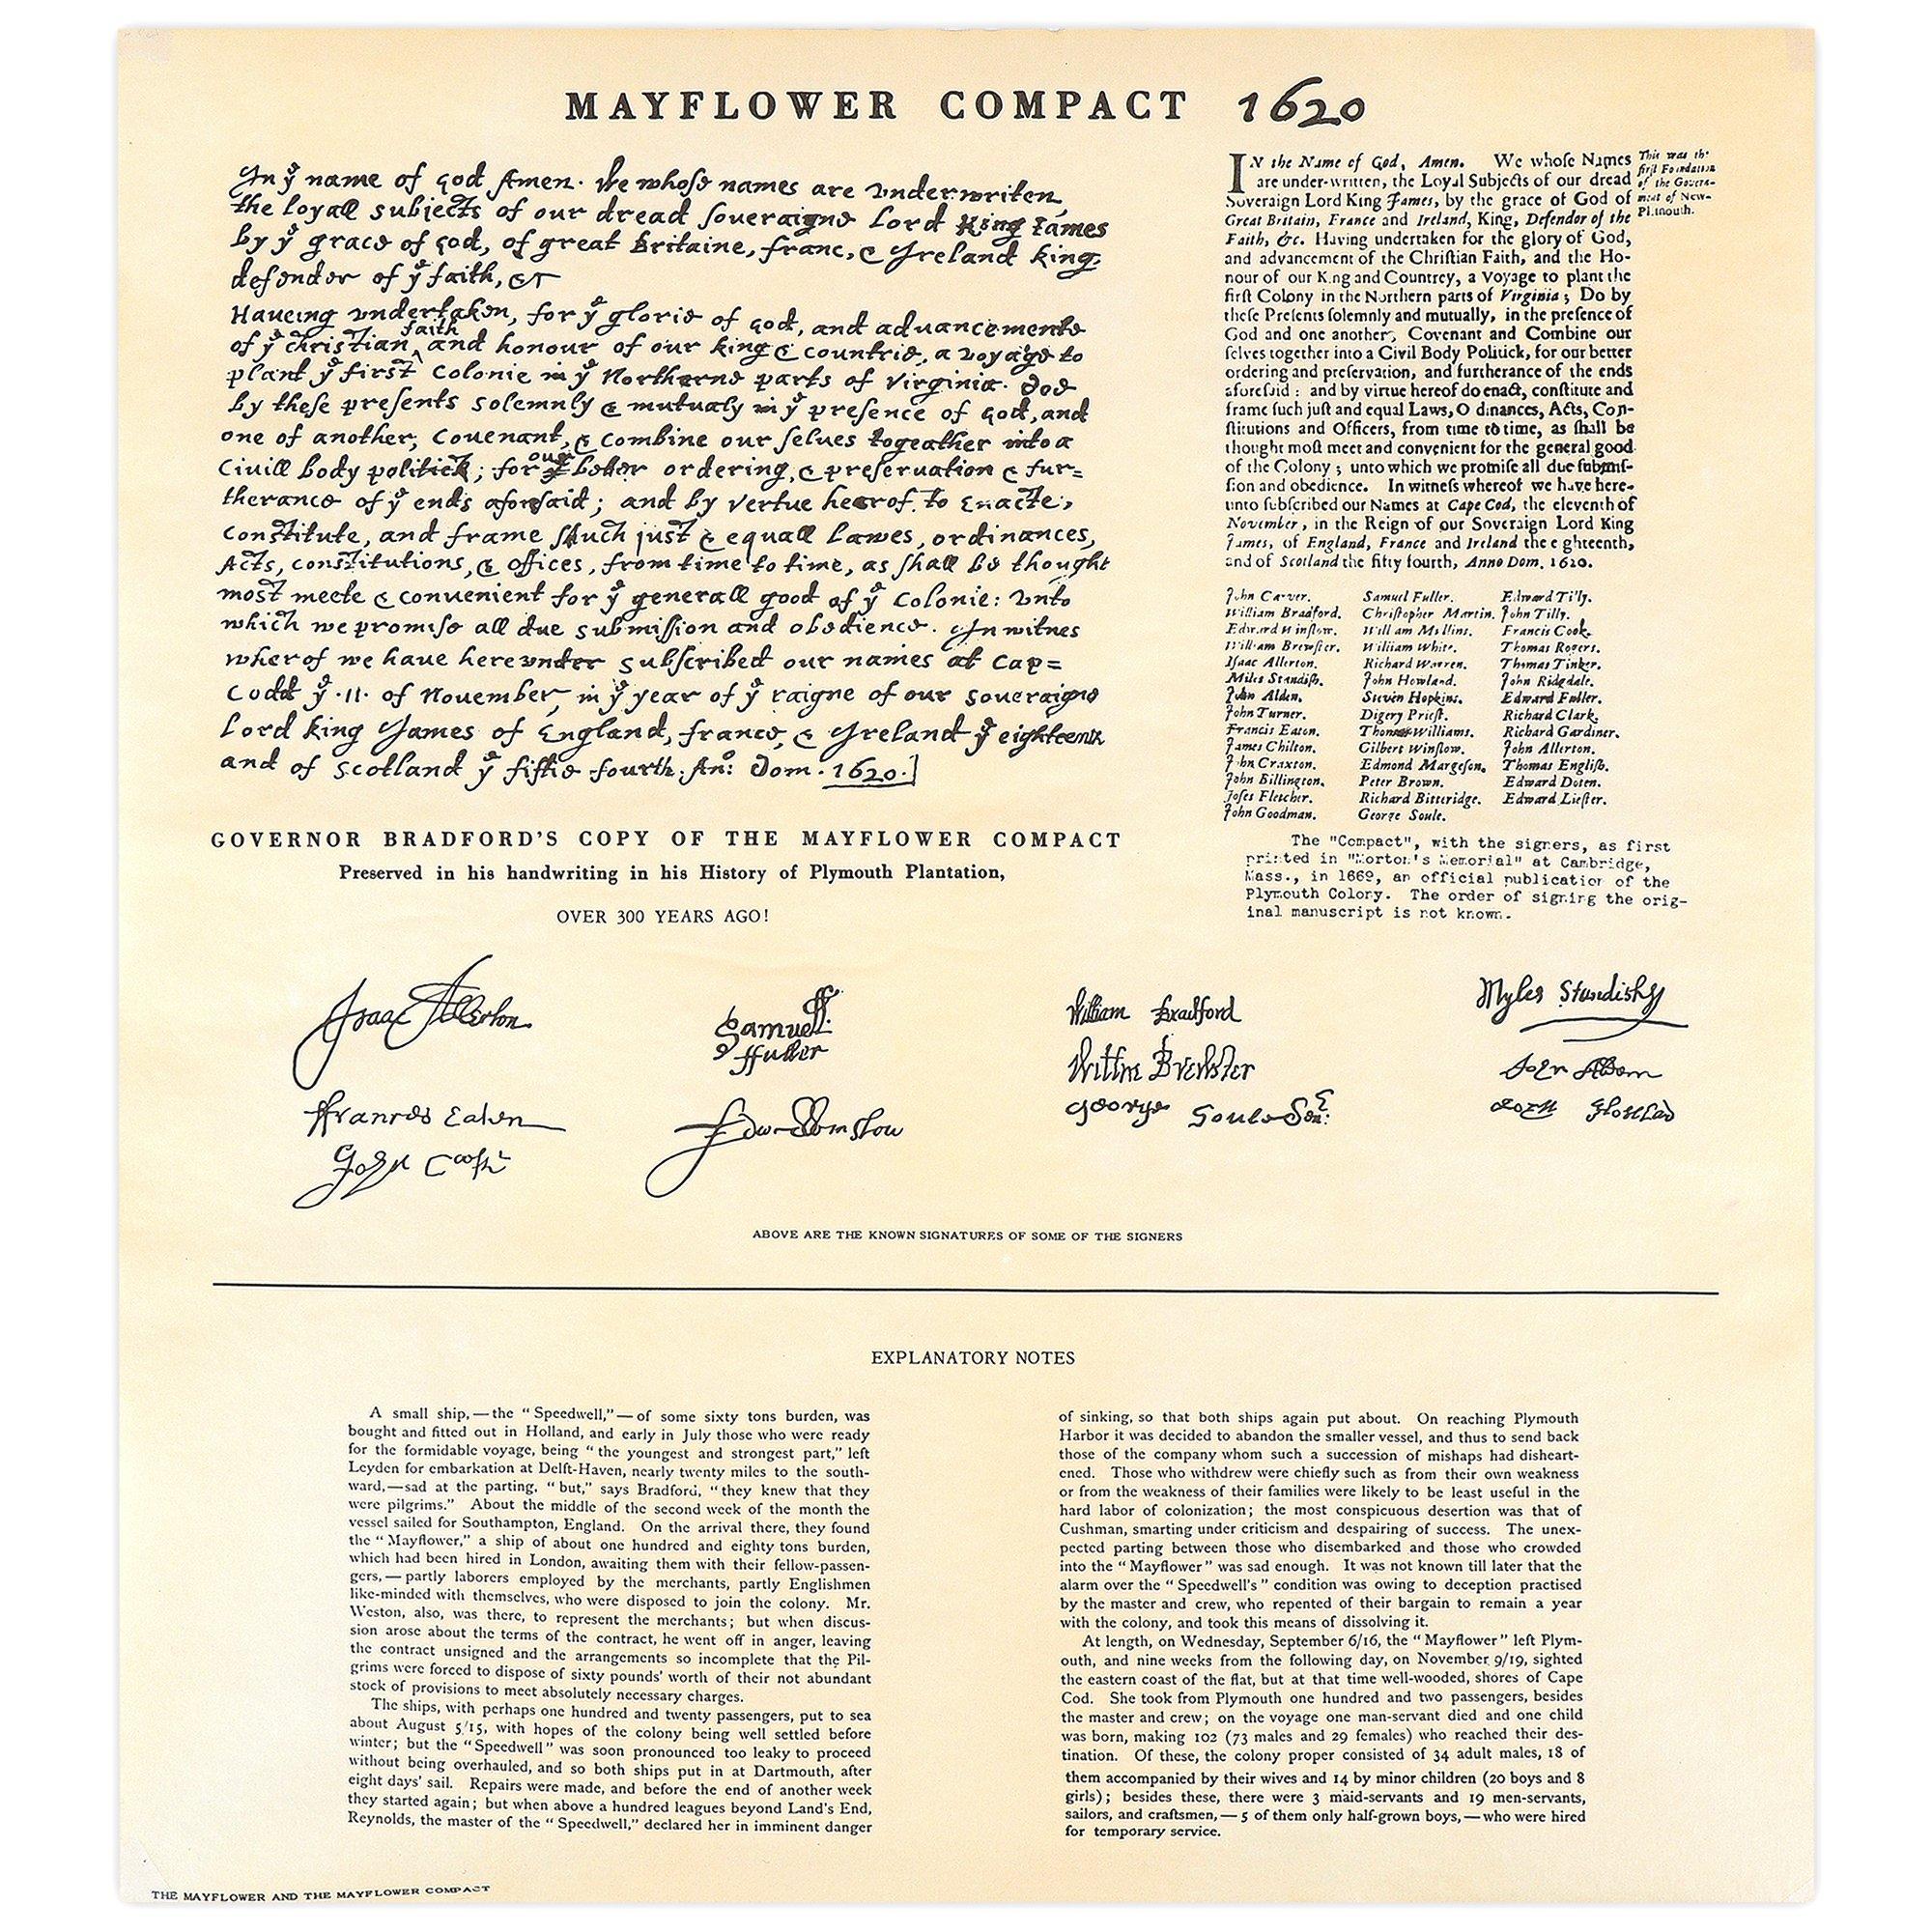 MAYFLOWER COMPACT 1620
In yͤ name of god Amen. We whose names are vnderwriten,
the loyall subjects of our dread soueraigne Lord King James
by yͤ grace of god, of great Britaine, franc, & Ireland king,
defender of yͤ faith, &c
Haueing vndertaken, for yͤ glorie of god, and aduancemente
of yͤ christian faith and honour of our king & countrie, a voyage to
plant yͤ first colonie in yͤ Northerne parts of Virginia. Doe
by these presents solemnly & mutualy in yͤ presence of god, and
one of another, couenant, & combine our selues togeather into a
Ciuill body politick; for our yͤ better ordering, & preseruation & fur=
therance of yͤ ends aforesaid; and by vertue hearof to Enacte,
constitute, and frame shuch just & equall Lawes, ordinances,
Acts, constitutions, & offices, from time to time, as shall be thought
most meete & conuenient for yͤ generall good of yͤ colonie: vnto
which we promise all due submission and obedience. In witnes
wherof we haue herevnder subscribed our names at Cap=
Codd yͤ .11. of Nouember, in yͤ year of yͤ raigne of our soueraigne
Lord king James of England, france, & Ireland yͤ eighteenth
and of Scotland yͤ fiftie fourth. Anͦ: Dom. 1620.]
GOVERNOR BRADFORD'S COPY OF THE MAYFLOWER COMPACT
Preserved in his handwriting in his History of Plymouth Plantation,
OVER 300 YEARS AGO!
IN the Name of God, Amen. We whoſe Names
are under-written, the Loyal Subjects of our dread
Soveraign Lord King James, by the grace of God of
Great Britain, France and Ireland, King, Defender of the
Faith, &c. Having undertaken for the glory of God,
and advancement of the Chriſtian Faith, and the Ho-
nour of our King and Countrey, a Voyage to plant the
firſt Colony in the Northern parts of Virginia; Do by
theſe Preſents ſolemnly and mutually, in the preſence of
God and one another, Covenant and Combine our
ſelves together into a Civil Body Politick, for our better
ordering and preſervation, and furtherance of the ends
aforeſaid: and by virtue hereof do enact, conſtitute and
frame ſuch juſt and equal Laws, Ordinances, Acts, Con-
ſtitutions and Officers, from time to time, as ſhall be
thought moſt meet and convenient for the general good
of the Colony; unto which we promiſe all due ſubmiſ-
ſion and obedience. In witneſs whereof we have here-
unto ſubſcribed our Names at Cape Cod, the eleventh of
November, in the Reign of our Soveraign Lord King
James, of England, France and Ireland the eighteenth,
and of Scotland the fifty fourth, Anno Dom. 1620.
This was the
firſt Foundation
of the Govern-
ment of New-
Plimouth.
John Carver. Samuel Fuller. Edward Tilly.
William Bradford. Chriſtopher Martin. John Tilly.
Edward Winſlow. William Mullins. Francis Cook.
William Brewſter. William White. Thomas Rogers.
Iſaac Allerton. Richard Warren. Thomas Tinker.
Miles Standiſh. John Howland. John Ridgdale.
John Alden. Steven Hopkins. Edward Fuller.
John Turner. Digery Prieſt. Richard Clark.
Francis Eaton. Thomas Williams. Richard Gardiner.
James Chilton. Gilbert Winſlow. John Allerton.
John Craxton. Edmond Margeſon. Thomas Engliſh.
John Billington. Peter Brown. Edward Doten.
Joſes Fletcher. Richard Bitteridge. Edward Lieſter.
John Goodman. George Soule.
The "Compact", with the signers, as first
printed in "Morton's Memorial" at Cambridge,
Mass., in 1669, an official publication of the
Plymouth Colony. The order of signing the orig-
inal manuscript is not known.
Isaac Allerton
Samuell
ffuller
William Bradford
Myles Standish
Willm Brewster
John Alden
Francis Eaton
Edw Winslow
George Soule Senͬ:
John Howland
John Cooke
ABOVE ARE THE KNOWN SIGNATURES OF SOME OF THE SIGNERS
EXPLANATORY NOTES
A small ship,—the "Speedwell,"—of some sixty tons burden, was
bought and fitted out in Holland, and early in July those who were ready
for the formidable voyage, being "the youngest and strongest part," left
Leyden for embarkation at Delft-Haven, nearly twenty miles to the south-
ward,—sad at the parting, "but," says Bradford, "they knew that they
were pilgrims." About the middle of the second week of the month the
vessel sailed for Southampton, England. On the arrival there, they found
the "Mayflower," a ship of about one hundred and eighty tons burden,
which had been hired in London, awaiting them with their fellow-passen-
gers,—partly laborers employed by the merchants, partly Englishmen
like-minded with themselves, who were disposed to join the colony. Mr.
Weston, also, was there, to represent the merchants; but when discus-
sion arose about the terms of the contract, he went off in anger, leaving
the contract unsigned and the arrangements so incomplete that the Pil-
grims were forced to dispose of sixty pounds' worth of their not abundant
stock of provisions to meet absolutely necessary charges.
The ships, with perhaps one hundred and twenty passengers, put to sea
about August 5/15, with hopes of the colony being well settled before
winter; but the "Speedwell" was soon pronounced too leaky to proceed
without being overhauled, and so both ships put in at Dartmouth, after
eight days' sail. Repairs were made, and before the end of another week
they started again; but when above a hundred leagues beyond Land's End,
Reynolds, the master of the "Speedwell," declared her in imminent danger
of sinking, so that both ships again put about. On reaching Plymouth
Harbor it was decided to abandon the smaller vessel, and thus to send back
those of the company whom such a succession of mishaps had disheart-
ened. Those who withdrew were chiefly such as from their own weakness
or from the weakness of their families were likely to be least useful in the
hard labor of colonization; the most conspicuous desertion was that of
Cushman, smarting under criticism and despairing of success. The unex-
pected parting between those who disembarked and those who crowded
into the "Mayflower" was sad enough. It was not known till later that the
alarm over the "Speedwell's" condition was owing to deception practised
by the master and crew, who repented of their bargain to remain a year
with the colony, and took this means of dissolving it.
At length, on Wednesday, September 6/16, the "Mayflower" left Plym-
outh, and nine weeks from the following day, on November 9/19, sighted
the eastern coast of the flat, but at that time well-wooded, shores of Cape
Cod. She took from Plymouth one hundred and two passengers, besides
the master and crew; on the voyage one man-servant died and one child
was born, making 102 (73 males and 29 females) who reached their des-
tination. Of these, the colony proper consisted of 34 adult males, 18 of
them accompanied by their wives and 14 by minor children (20 boys and 8
girls); besides these, there were 3 maid-servants and 19 men-servants,
sailors, and craftsmen,—5 of them only half-grown boys,—who were hired
for temporary service.
THE MAYFLOWER AND THE MAYFLOWER COMPACT